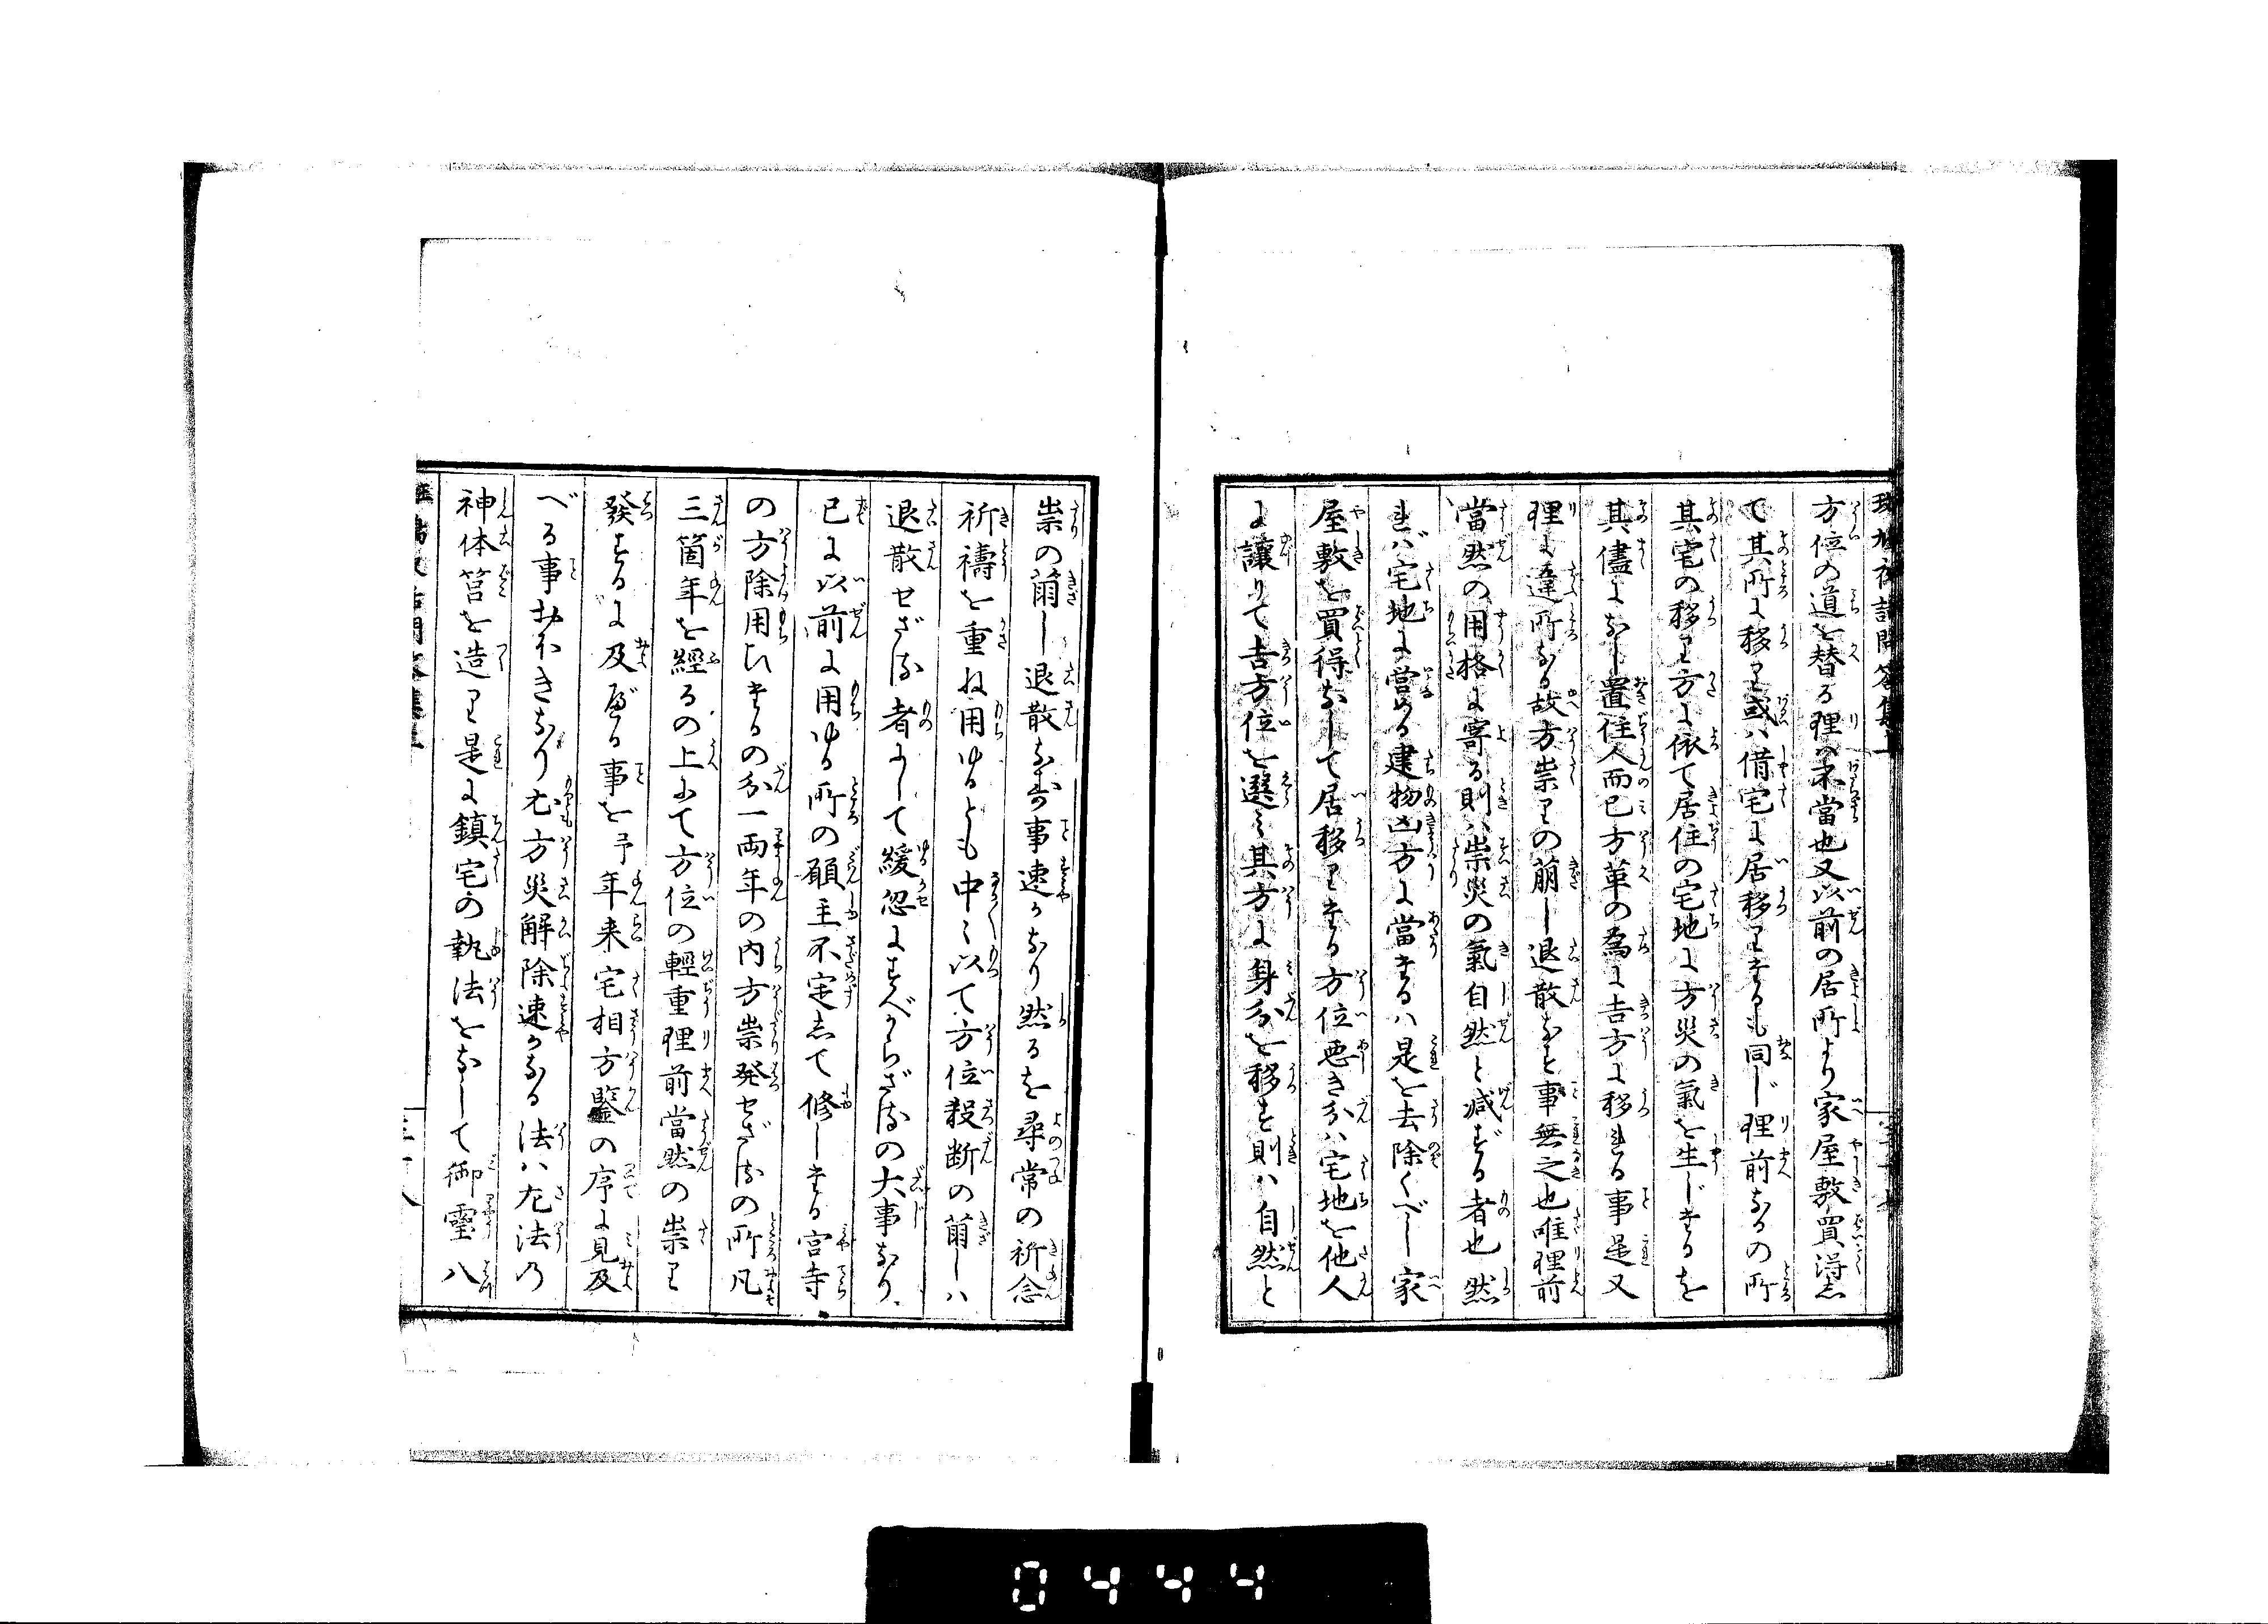 方位の道を替る理の不當也又以前の居所より家屋敷買得志
て其所に移り或ハ借宅に居移りするも同じ理前なるの所
其宅の移り方に依て居住の宅地に方災の氣を生じするを
其儘になし置住人而已方革の為に吉方に移れる事是又
理に違所なる故方祟りの萠し退散なす事無之也唯理前
當然の用格に寄る則ハ祟災の氣自然と减ずる者也然
れバ宅地に営める建物凶方に當するハ是を去除くべし家
屋敷を買得なして居移りする方位悪き分ハ宅地を他人
に譲りて吉方位を選ミ其方に身分を移す則ハ自然と
祟の萠し退散なす事速かなり然るを尋常の祈念
祈禱を重ね用ゆるとも中〻以て方位殺断の萠しハ
退散せざる者にして緩忽にすべからざるの大事なり
已に以前に用ゆる所の願主不定志て修しする宮寺
の方除用ひするの分一両年の内方祟発せざるの所凡
三箇年を經るの上にて方位の輕重理前當然の祟り
發するに及べる事を予年来宅相方鑒の序に見及
べる事おほきなり尤方災解除速かなる法ハ左法の
神体筥を造り是に鎮宅の執法をなして御靈八